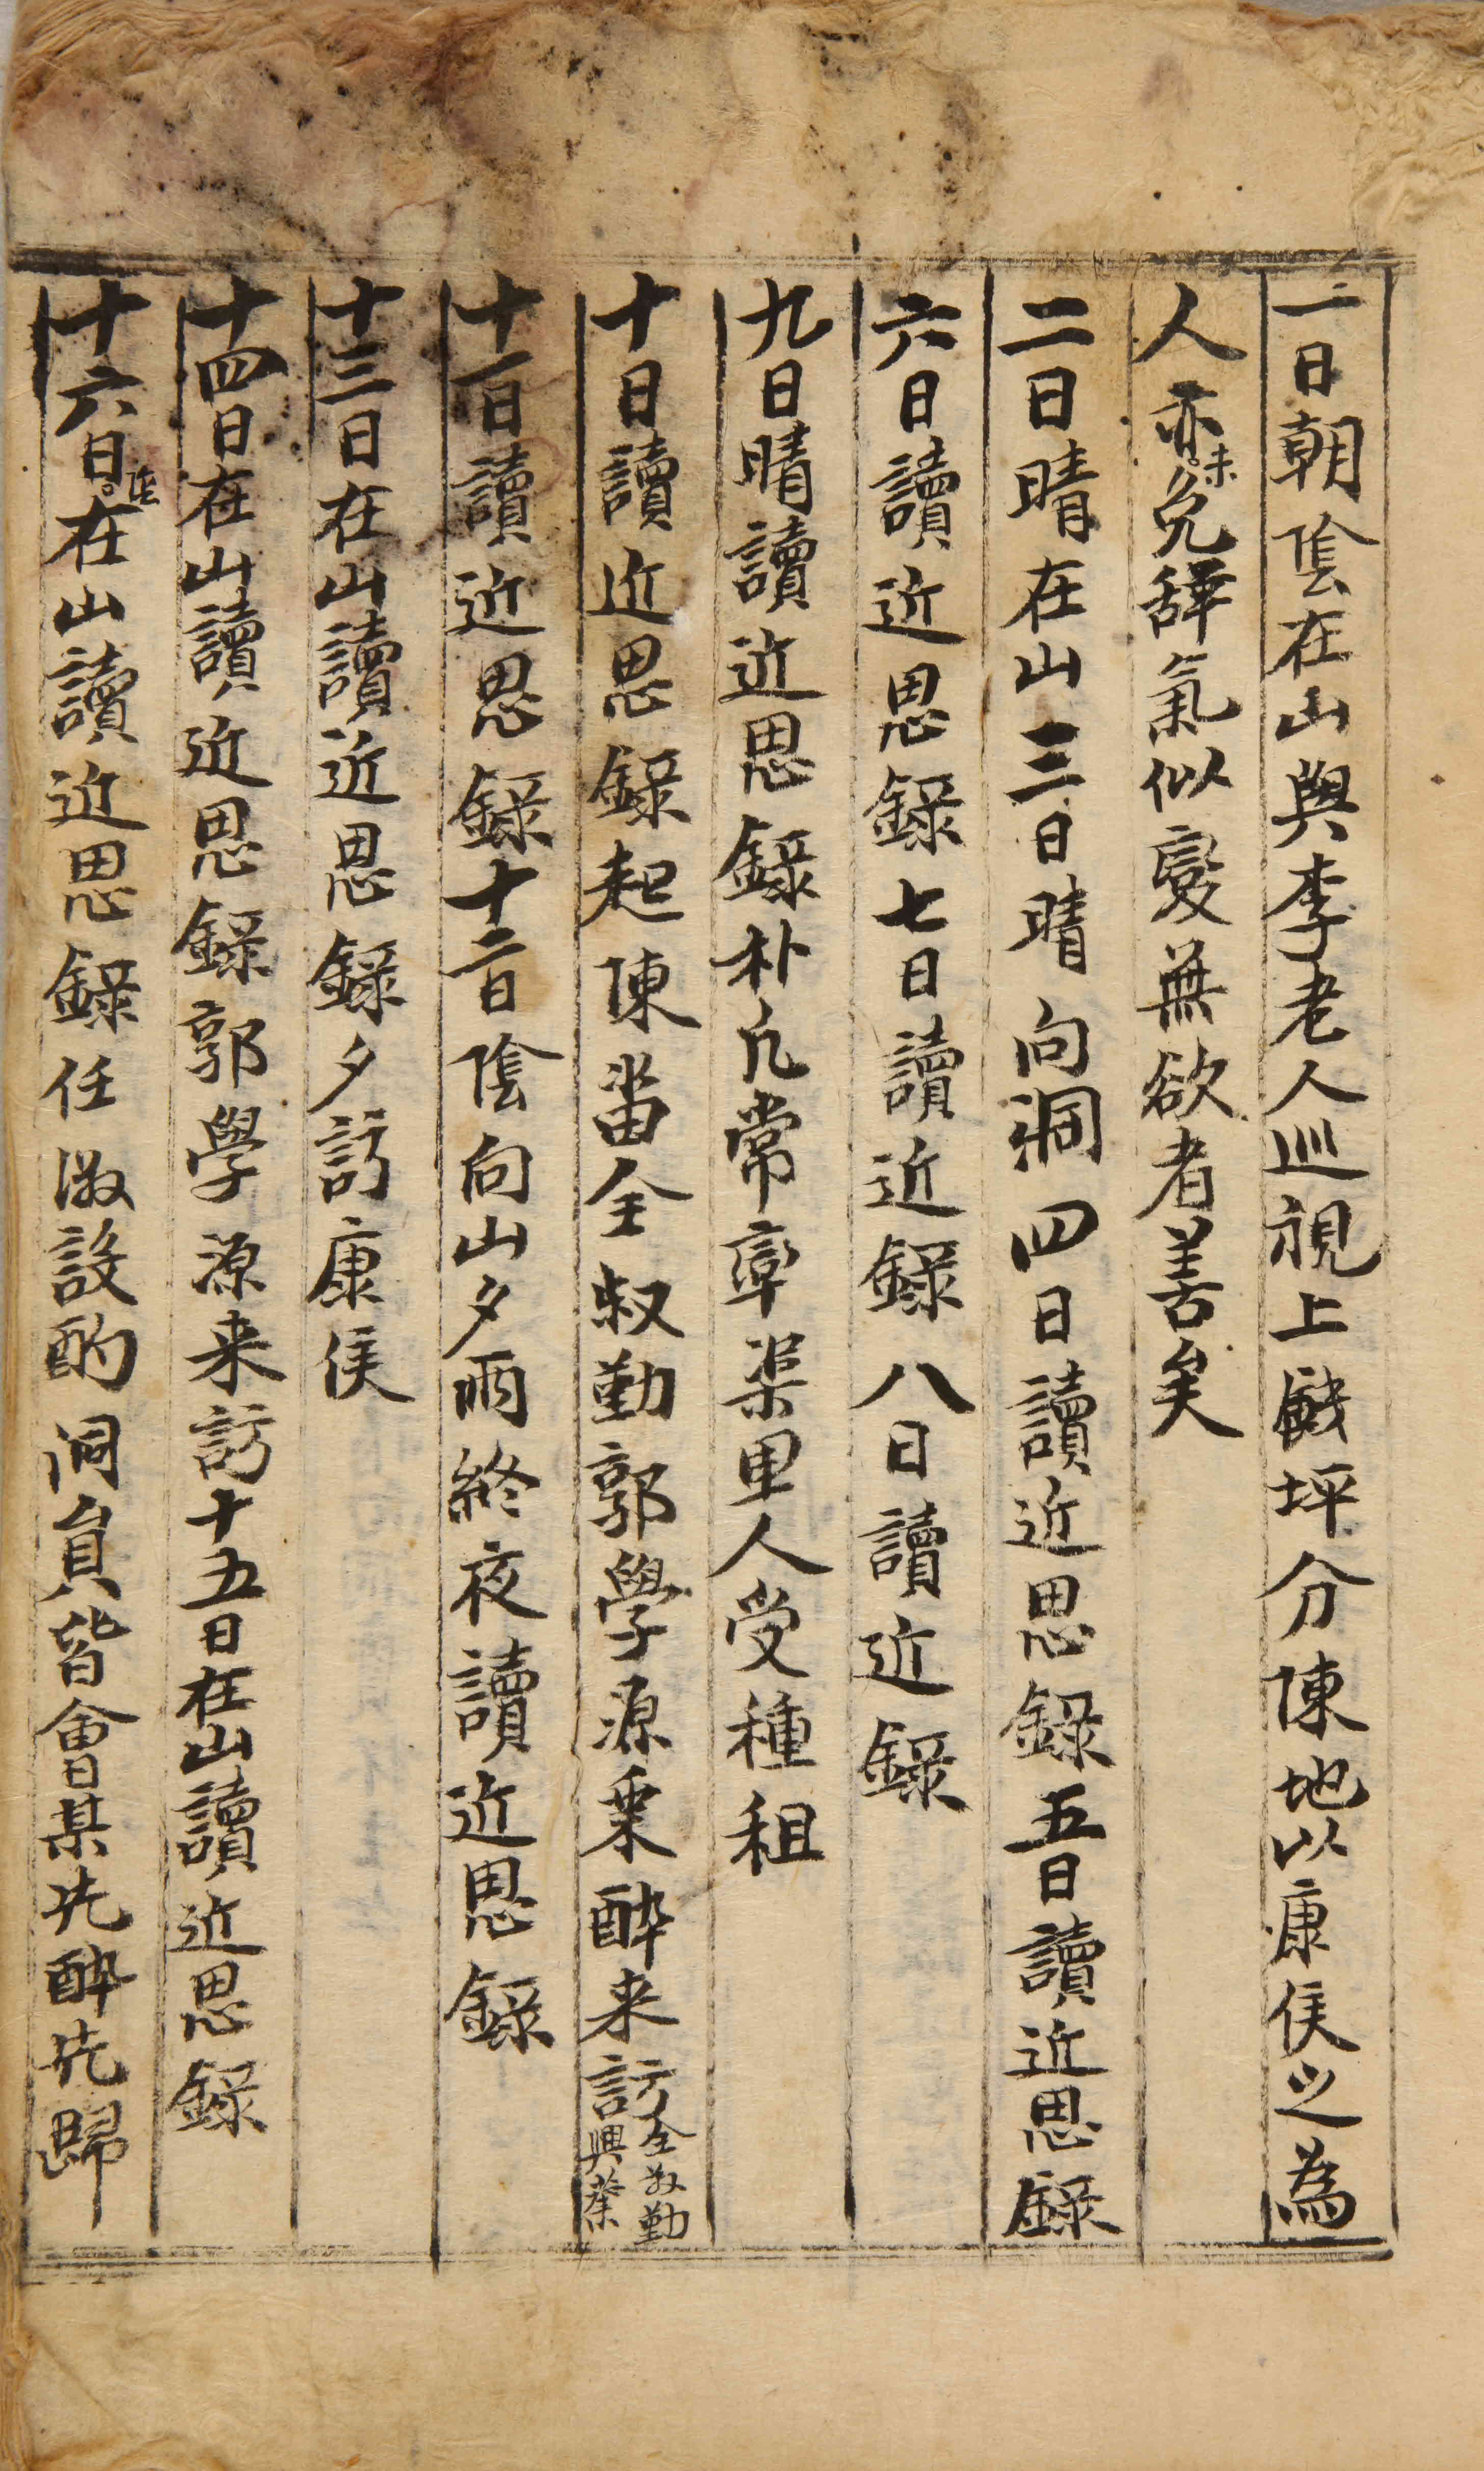 一日朝陰在山與李老人巡視上戱坪分陳地以康侯之為
人亦未免辞氣似變無欲者善矣
二日晴在山三日晴向洞四日讀近思録五日讀近思録
六日讀近思録七日讀近録八日讀近録
九日晴讀近思録朴凡常率渠里人受種租
十日讀近思録起陳畓全叔勤郭學源乗酔来訪全叔勤興蔡
十一日讀近思録十二日陰向山夕雨終夜讀近思録
十三日在山讀近思録夕訪康侯
十四日在山讀近思録郭學源来訪十五日在山讀近思録
十六日在山讀近思録任淑設酌洞員皆會日某先酔先歸